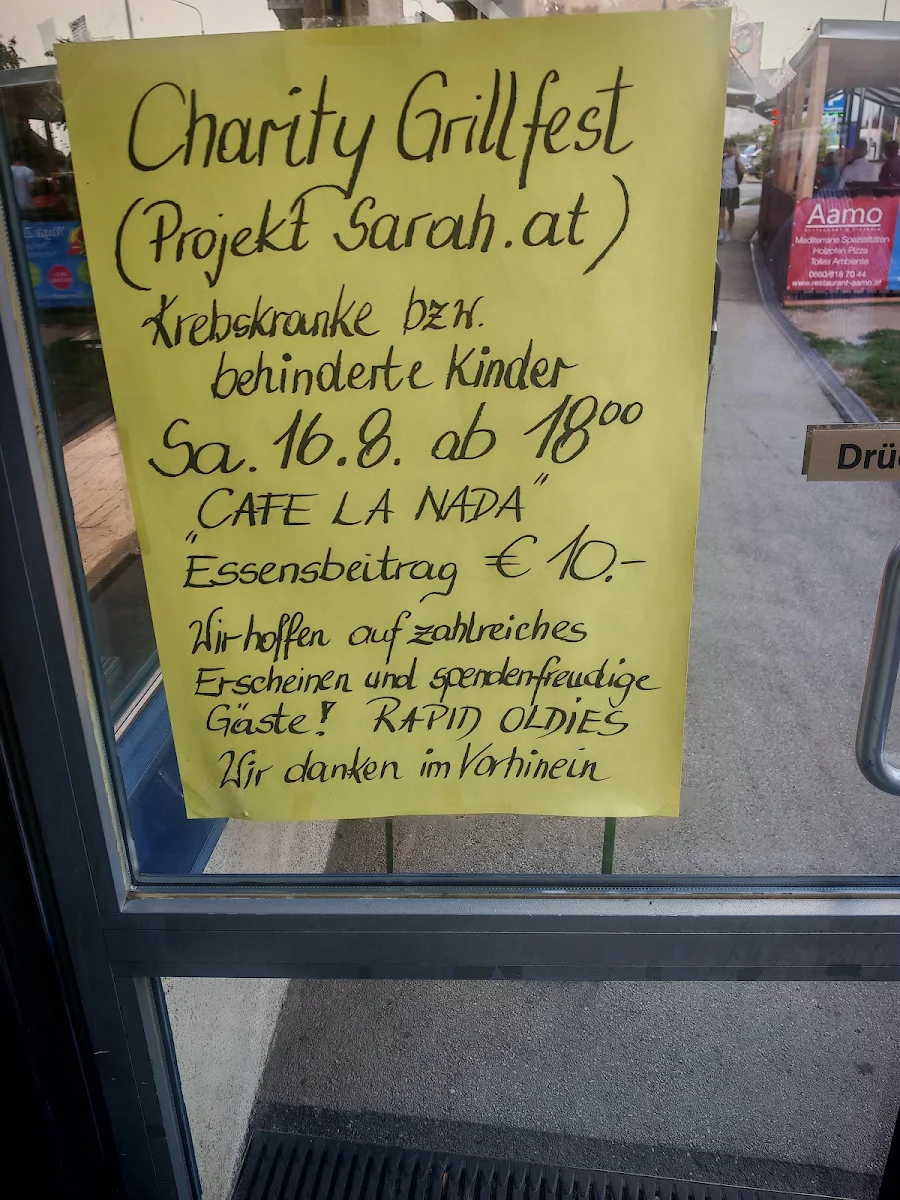 Charity Grillfest
(Projekt Sarah.at)
Krebskranke bzw.
behinderte Kinder
Sa. 16.8. ab 18⁰⁰
"CAFE LA NADA"
Essensbeitrag € 10.-
Wir hoffen auf zahlreiches
Erscheinen und spendenfreudige
Gäste! RAPID OLDIES
Wir danken im Vorhinein
Aamo
RESTAURANT & PIZZERIA
Mediterrane Spezialitäten
Holzofen Pizza
Tolles Ambiente
0660/818 70 44
www.restaurant-aamo.at
Drü